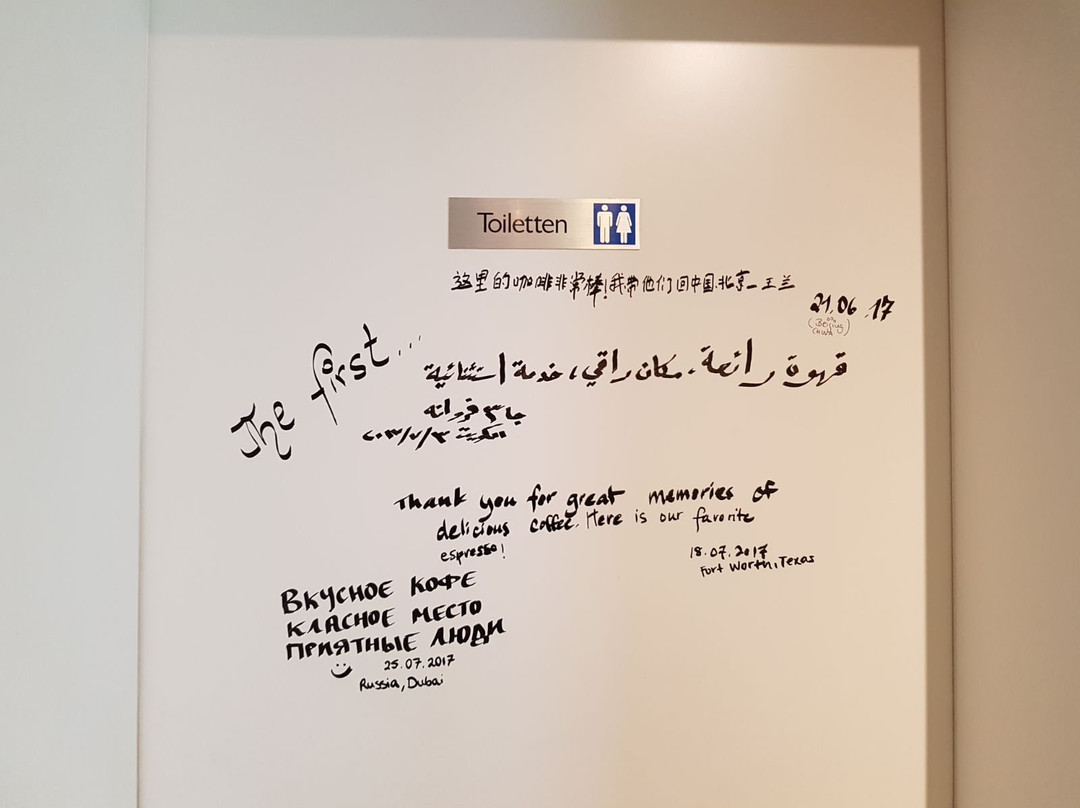 Toiletten
这里的咖啡非常棒!我带他们回中国.北京_王兰
21.06.17
(Beijing
CHINA)
The first...
قهوة رائعة. مكان راقي، خدمة استثنائية
الكويت
Thank you for great memories of
delicious coffee. Here is our favorite
espresso!
18.07.2017
Fort Worth, Texas
ВКУСНОЕ КОФЕ
КЛАСНОЕ МЕСТО
ПРИЯТНЫЕ ЛЮДИ
25.07.2017
Russia, Dubai